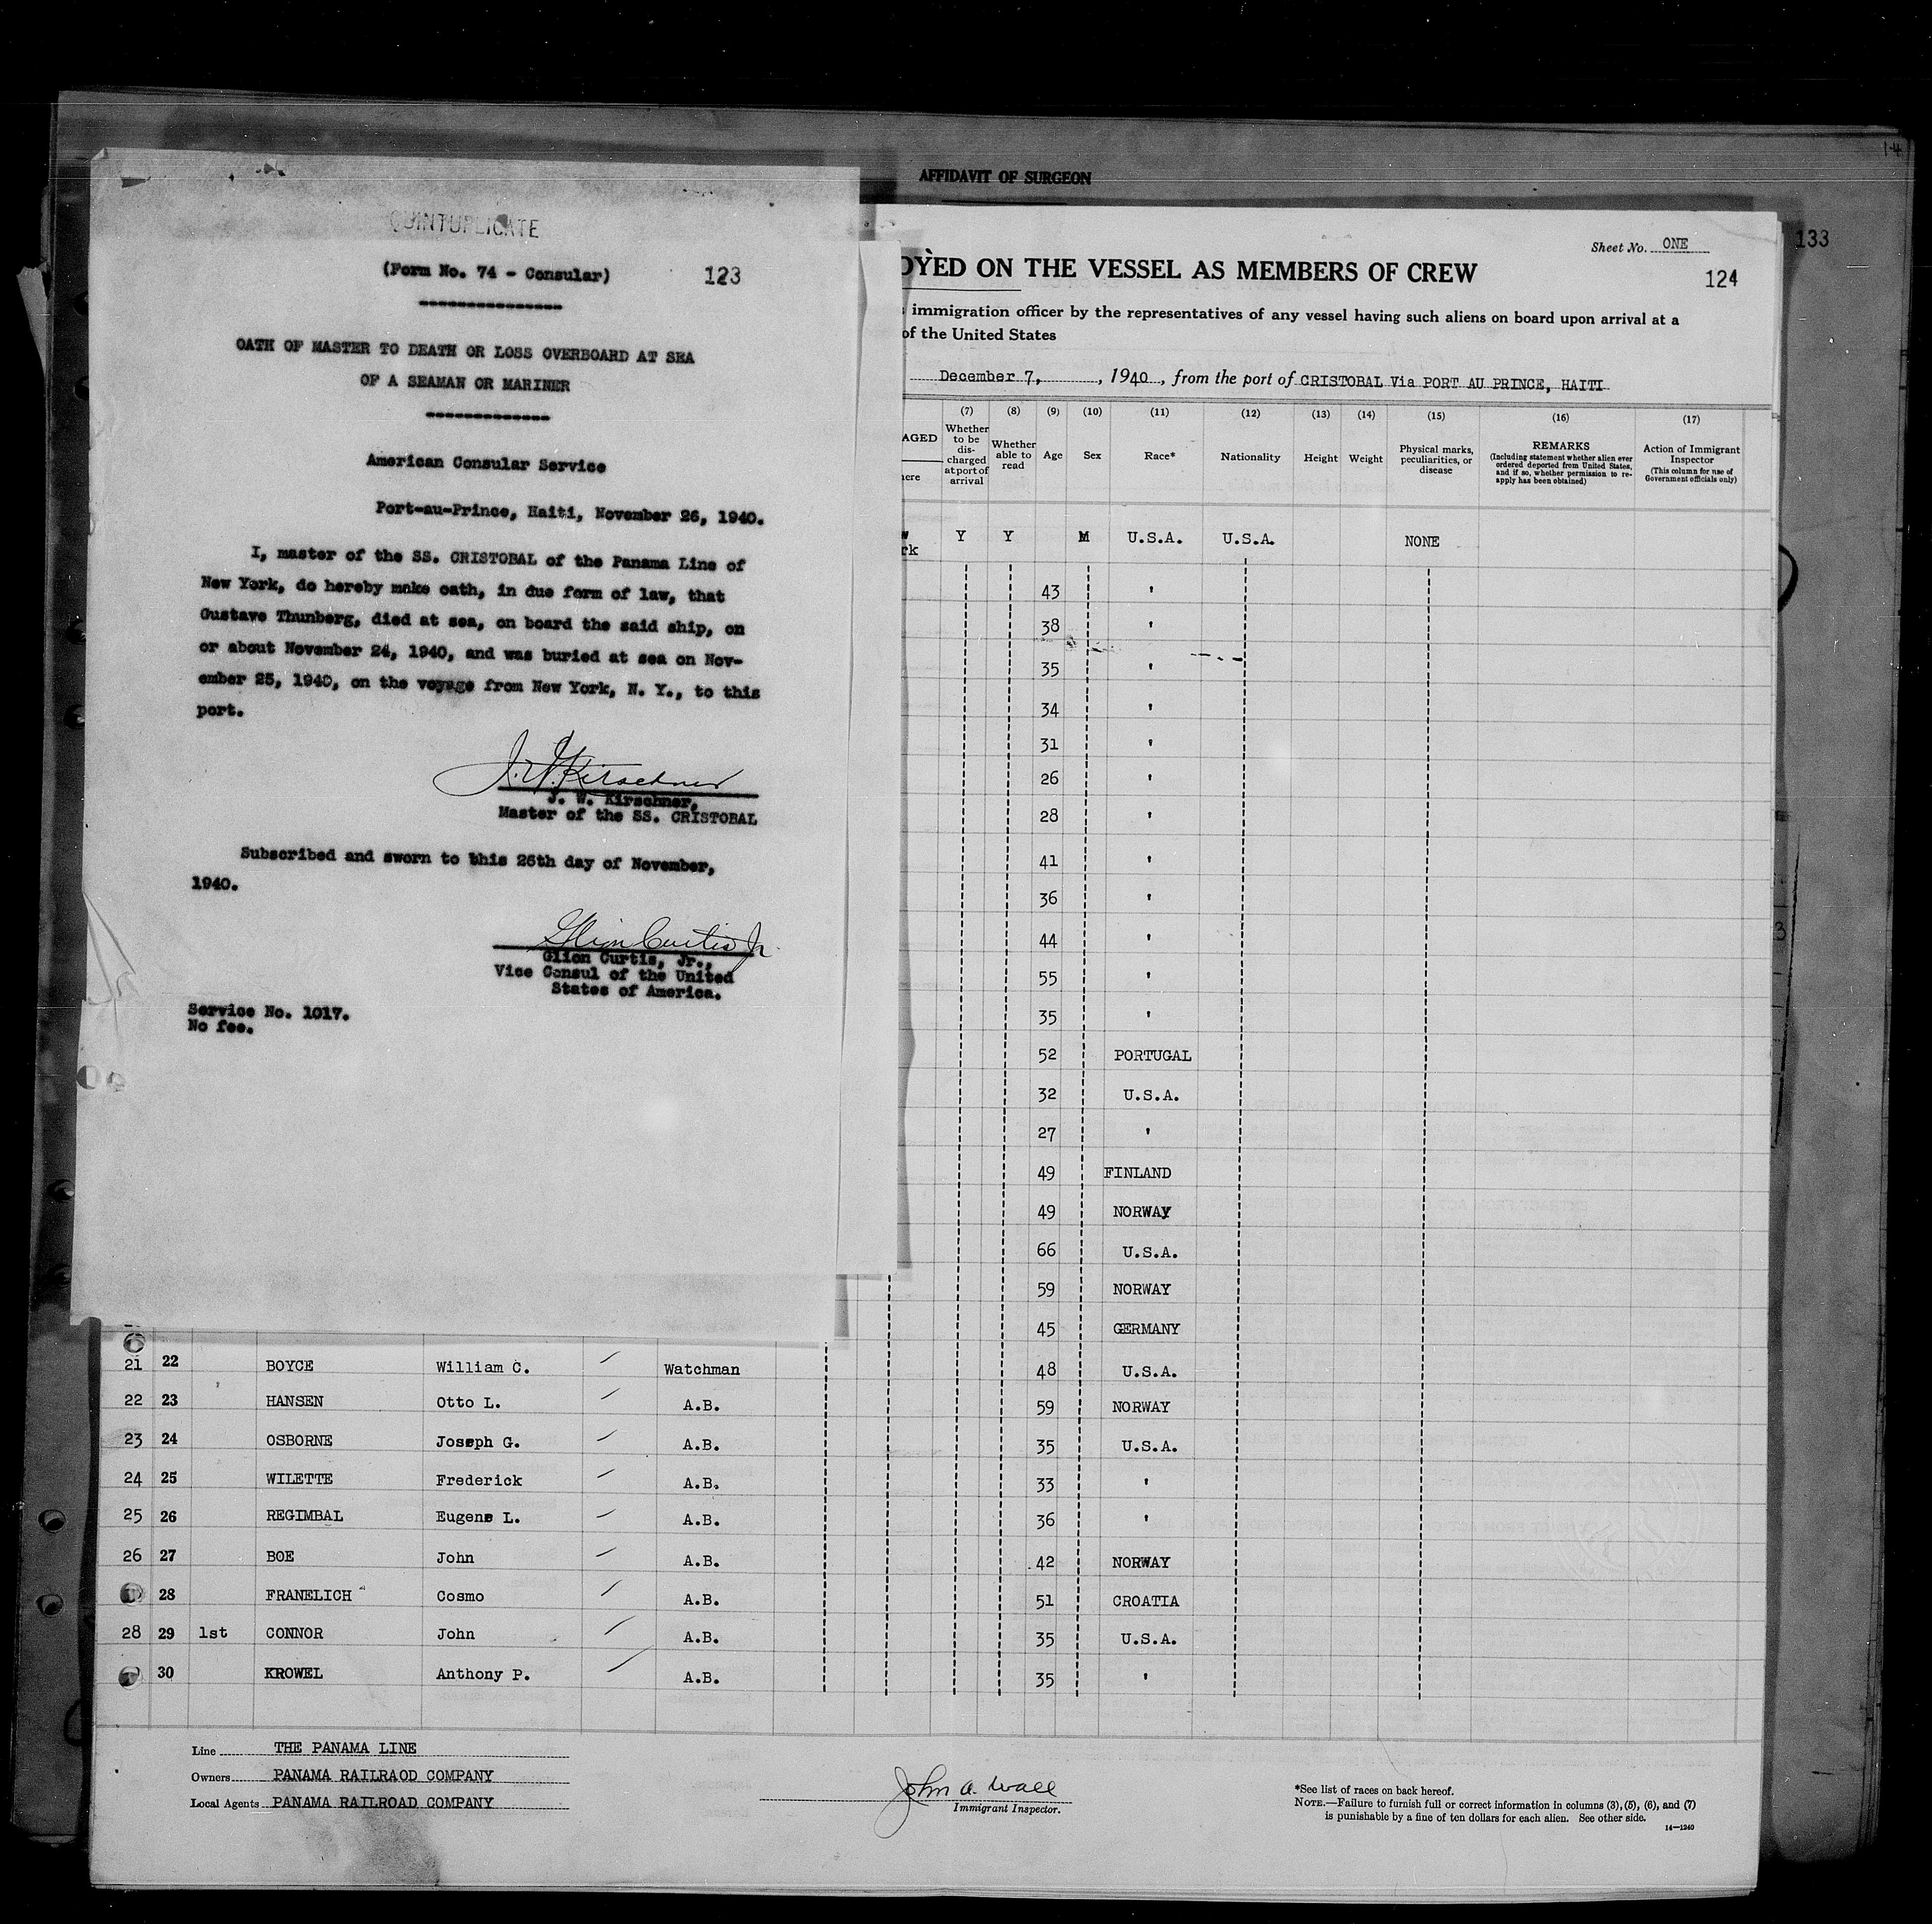 14
AFFIDAVIT OF SURGEON
133
QUINTUPLICATE
(Form No. 74 - Consular) 123
OATH OF MASTER TO DEATH OR LOSS OVERBOARD AT SEA
OF A SEAMAN OR MARINER
American Consular Service
Port-au-Prince, Haiti, November 26, 1940.
I, master of the SS. CRISTOBAL of the Panama Line of
New York, do hereby make oath, in due form of law, that
Gustave Thunberg, died at sea, on board the said ship, on
or about November 24, 1940, and was buried at sea on Nov-
ember 25, 1940, on the voyage from New York, N. Y., to this
port.
J. W. Kirschner
J. W. Kirschner,
Master of the SS. CRISTOBAL
Subscribed and sworn to this 26th day of November,
1940.
Glion Curtis Jr
Glion Curtis, Jr.,
Vice Consul of the United
States of America.
Service No. 1017.
No fee.
Sheet No. ONE
OYED ON THE VESSEL AS MEMBERS OF CREW
124
immigration officer by the representatives of any vessel having such aliens on board upon arrival at a
of the United States
December 7, , 1940, from the port of CRISTOBAL Via PORT AU PRINCE, HAITI
(7) (8) (9) (10) (11) (12) (13) (14) (15) (16) (17)
AGED
here
Whether to be discharged at port of arrival
Whether able to read
Age
Sex
Race*
Nationality
Height
Weight
Physical marks, peculiarities, or disease
REMARKS
(Including statement whether alien ever ordered deported from United States, and if so, whether permission to re-apply has been obtained)
Action of Immigrant Inspector
(This column for use of Government officials only)
w
rk Y Y M U.S.A. U.S.A. NONE
43 '
38 '
35 '
34 '
31 '
26 '
28 '
41 '
36 '
44 '
55 '
35 '
52 PORTUGAL
32 U.S.A.
27 '
49 FINLAND
49 NORWAY
66 U.S.A.
59 NORWAY
45 GERMANY
21 22 BOYCE William C. Watchman 48 U.S.A.
22 23 HANSEN Otto L. A.B. 59 NORWAY
23 24 OSBORNE Joseph G. A.B. 35 U.S.A.
24 25 WILETTE Frederick A.B. 33 '
25 26 REGIMBAL Eugene L. A.B. 36 '
26 27 BOE John A.B. 42 NORWAY
28 FRANELICH Cosmo A.B. 51 CROATIA
28 29 1st CONNOR John A.B. 35 U.S.A.
30 KROWEL Anthony P. A.B. 35 '
Line THE PANAMA LINE
Owners PANAMA RAILRAOD COMPANY
Local Agents PANAMA RAILROAD COMPANY
John A. Wall
Immigrant Inspector.
*See list of races on back hereof.
NOTE.—Failure to furnish full or correct information in columns (3), (5), (6), and (7)
is punishable by a fine of ten dollars for each alien. See other side.
14—1240